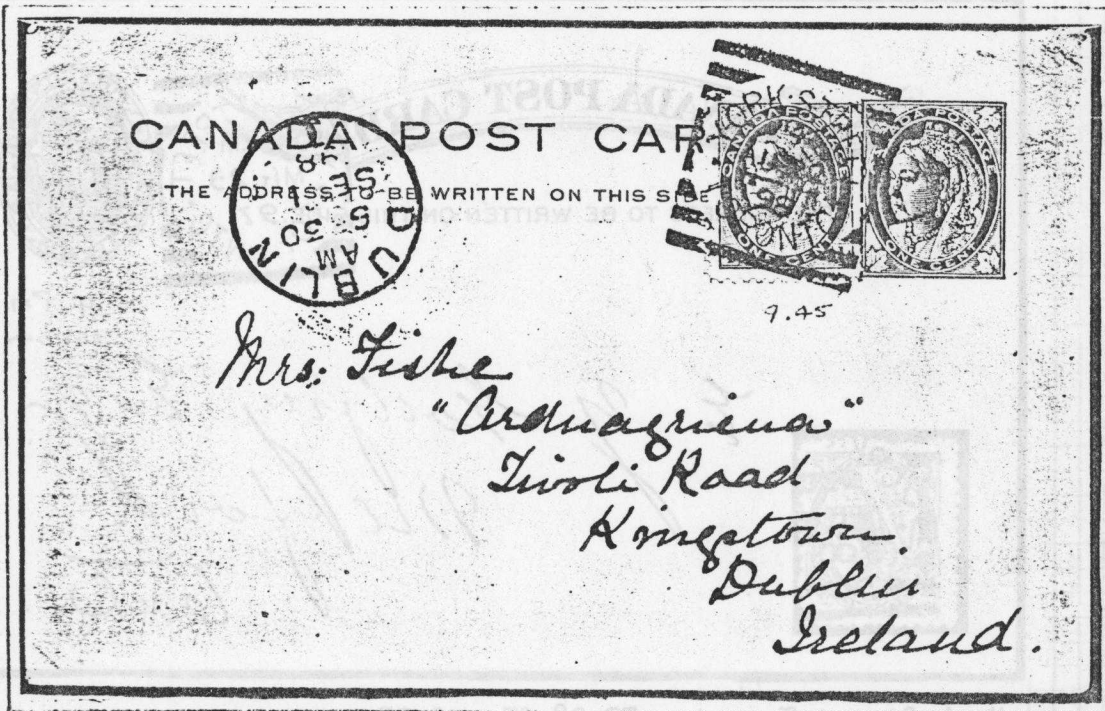 CANADA POST CAR
THE ADDRESS TO BE WRITTEN ON THIS SIDE
DUBLIN
AM
5 30
SE
98
YORK ST
CANADA POSTAGE
ONE CENT
ADA POSTAGE
ONE CENT
9.45
Mrs. Fishe
"Ardnagriena"
Tivoli Road
Kingstown
Dublin
Ireland.